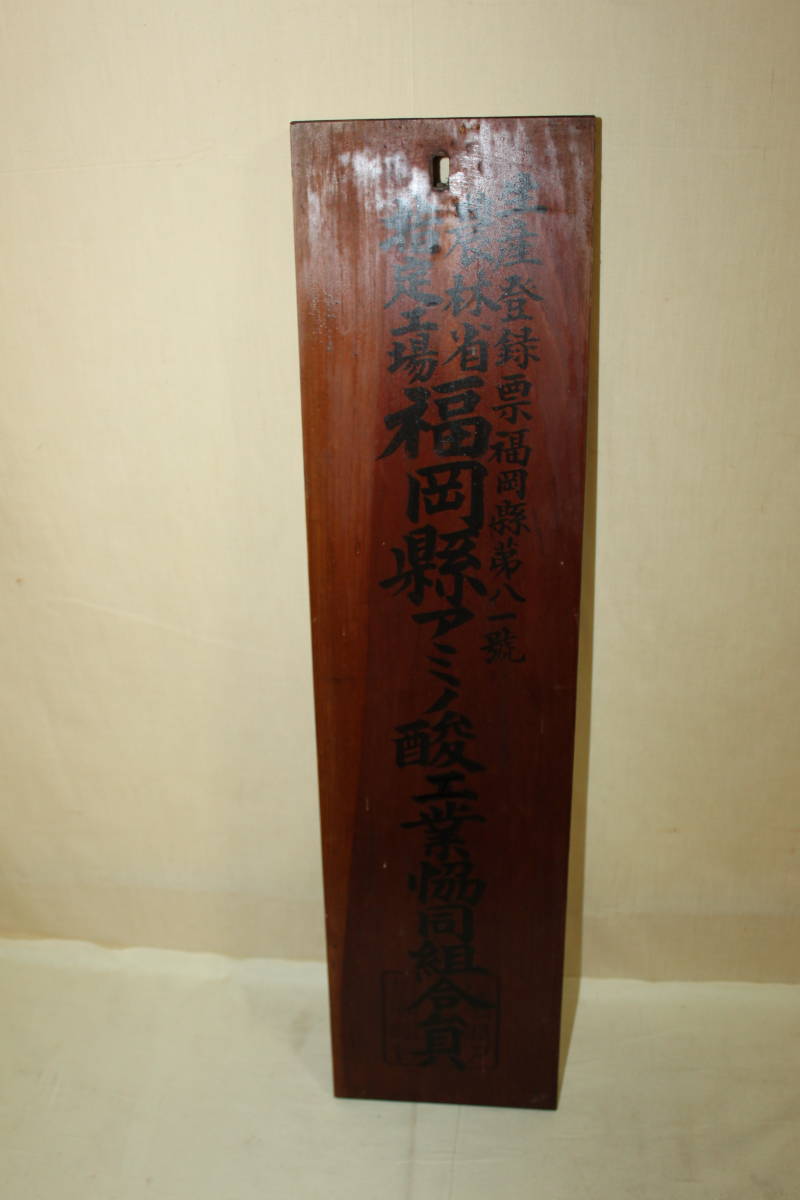 生産登録票福岡縣第八一號
農林省
指定工場
福岡縣アミノ酸工業協同組合員